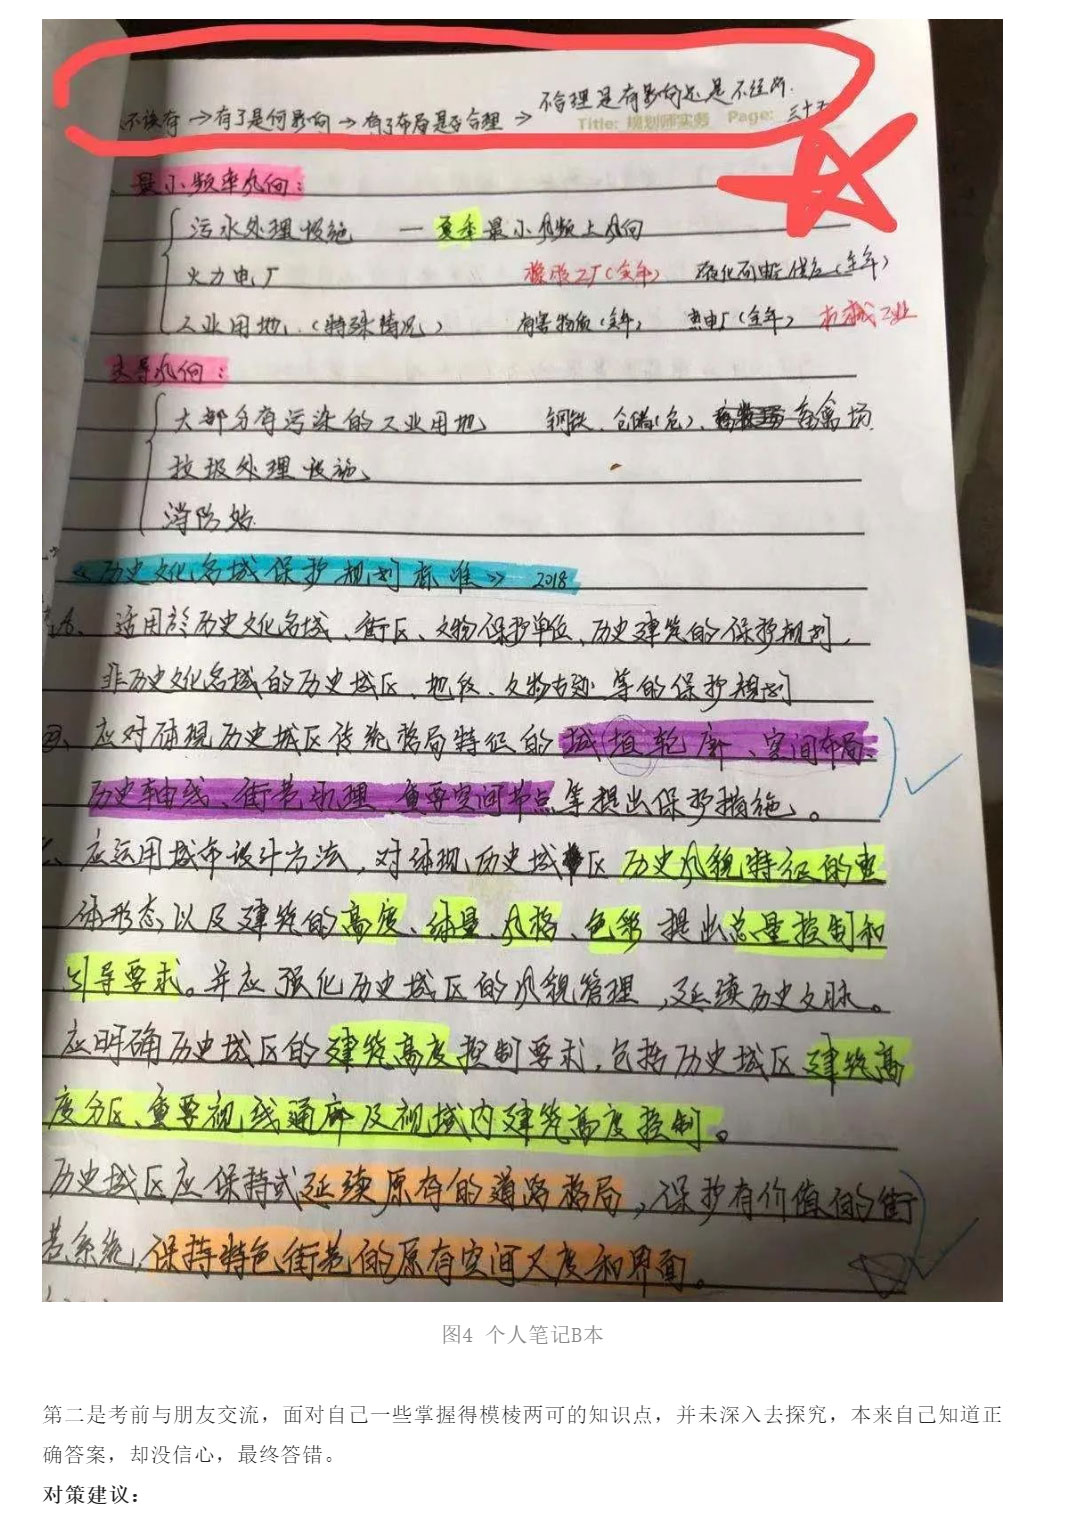 不合理是有影响还是不经济.
不该有→有了是何影响→有了布局是否合理→
Title: 规划师实务 Page: 三十五
最小频率风向:
污水处理设施 — 夏季最小风频上风向
火力电厂 橡胶工厂(全年) 液化石油气储(全年)
工业用地(特殊情况) 有害物质(全年) 热电厂(全年)
主导风向:
大部分有污染的工业用地 钢铁、仓储(危)、畜禽场
垃圾处理设施
消防站
《历史文化名城保护规划标准》 2018
适用於历史文化名城、街区、文物保护单位、历史建筑的保护规划,
非历史文化名城的历史城区、地段、文物古迹等的保护规划
应对体现历史城区传统格局特征的城垣轮廓、空间布局、
历史轴线、街巷肌理、重要空间节点等提出保护措施。
应运用城市设计方法,对体现历史城区历史风貌特征的整
体形态以及建筑的高度、体量、风格、色彩提出总量控制和
引导要求。并应强化历史城区的风貌管理,延续历史文脉。
应明确历史城区的建筑高度控制要求,包括历史城区建筑高
度分区、重要视线通廊及视域内建筑高度控制。
历史城区应保持或延续原有的道路格局,保护有价值的街
巷系统,保持特色街巷的原有空间尺度和界面。
图4 个人笔记B本
第二是考前与朋友交流，面对自己一些掌握得模棱两可的知识点，并未深入去探究，本来自己知道正
确答案，却没信心，最终答错。
对策建议：